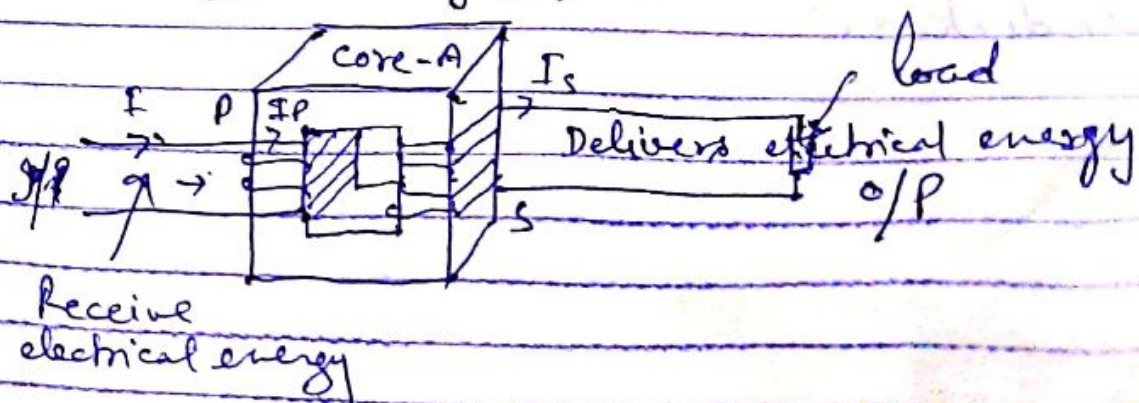 Core-A
load
I P IP
Is
Delivers electrical energy
I/P
O/P
S
Receive
electrical energy